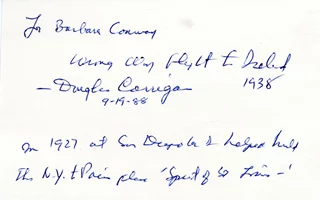 For Barbara Conway
Wrong Way Flight to Ireland
1938
– Douglas Corrigan
9-19-88
In 1927 at San Diego I helped build
The N.Y. to Paris plane 'Spirit of St Louis –'